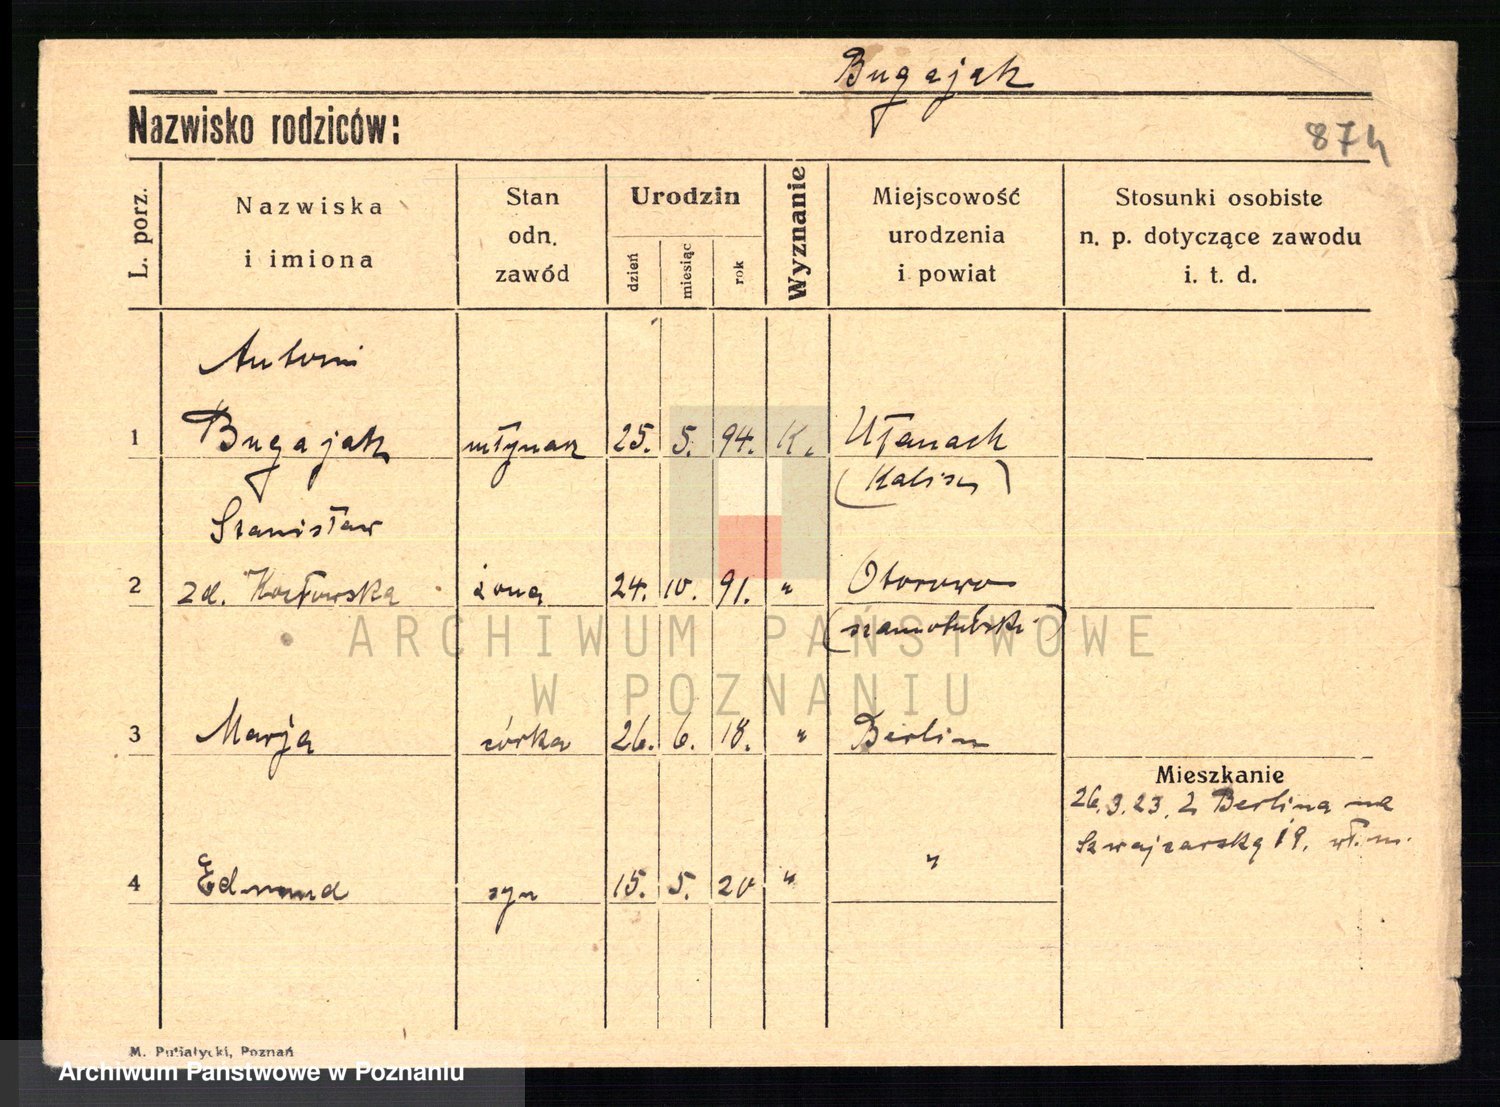 Bugajak
Nazwisko rodziców:
874
L. porz.
Nazwiska
i imiona
Stan
odn.
zawód
Urodzin
dzień
miesiąc
rok
Wyznanie
Miejscowość
urodzenia
i powiat
Stosunki osobiste
n. p. dotyczące zawodu
i. t. d.
Antoni
1 Bugajak młynarz 25. 5. 94. K. Ułanach
(Kalisz)
Stanisław
2 zd. Kozłowska żona 24. 10. 91. " Otorowo
(szamotulski)
3 Marja córka 26. 6. 18. " Berlin
Mieszkanie
26.3.23. z Berlina na
Szwajcarską 19. wł. m.
4 Edmund syn 15. 5. 20 " "
ARCHIWUM PAŃSTWOWE
W POZNANIU
M. Putiatycki, Poznań
Archiwum Państwowe w Poznaniu